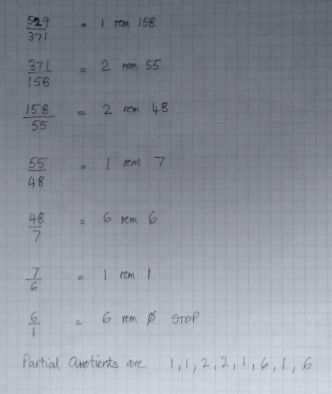 529/371 = 1 rem 158
371/158 = 2 rem 55
158/55 = 2 rem 48
55/48 = 1 rem 7
48/7 = 6 rem 6
7/6 = 1 rem 1
6/1 = 6 rem Ø STOP
Partial Quotients are 1,1,2,2,1,6,1,6